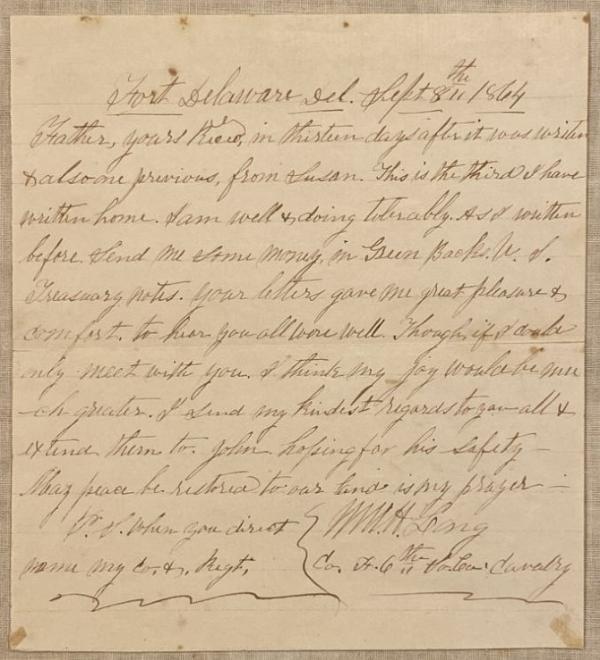 Fort Delaware Del. Sept 8th 1864
Father, yours Recd, in thirteen days after it was written
& also one previous, from Susan. This is the third I have
written home. I am well & doing tolerably. As I written
before send me some money, in Green Backs. U. S.
Treasuary notes. your letters gave me great pleasure &
comfort. to hear you all were well. Though, if I could
only meet with you. I think my joy would be mu
-ch greater. I send my kindest regards to you all &
extend them to. John hoping for his safety –
May peace be restored to our land is my prayer –
P. S. When you direct
name my Co. & Regt,
Wm. H. Long
Co. H. 6th Va. Cavalry